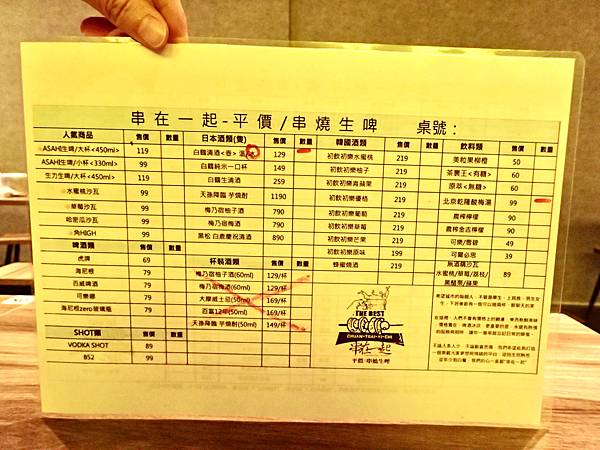 串在一起-平價/串燒生啤 桌號:
人氣商品 售價 數量
ASAHI生啤/大杯<450ml> 119
ASAHI生啤/小杯<330ml> 99
生力生啤/大杯<450ml> 119
水蜜桃沙瓦 99
草莓沙瓦 99
哈密瓜沙瓦 99
角HIGH 99
啤酒類 售價 數量
虎牌 69
海尼根 79
百威啤酒 79
可樂娜 79
海尼根zero玻璃瓶 79
SHOT類 售價 數量
VODKA SHOT 89
B52 99
日本酒類(隻) 售價 數量
白鶴清酒<壺> 溫 129
白鶴純米一口杯 149
白鶴生清酒 259
天孫降臨 芋燒酎 1190
梅乃宿柚子酒 790
梅乃宿梅酒 790
黑松 白鹿慶祝清酒 890
杯裝酒類 售價 數量
梅乃宿柚子酒(60ml) 129/杯
梅乃宿梅酒(60ml) 129/杯
大摩威士忌(50ml) 169/杯
百富12年(50ml) 169/杯
天孫降臨 芋燒酎(50ml) 149/杯
韓國酒類 售價 數量
初飲初樂水蜜桃 219
初飲初樂柚子 219
初飲初樂青蘋果 219
初飲初樂優格 219
初飲初樂葡萄 219
初飲初樂草莓 219
初飲初樂芒果 219
初飲初樂原味 199
蜂蜜燒酒 219
飲料類 售價 數量
美粒果柳橙 50
茶裏王<有糖> 60
原萃<無糖> 60
北京乾隆酸梅湯 99
農榨檸檬 90
農榨金吉檸檬 90
可樂/雪碧 49
可爾必思 39
無酒精沙瓦
水蜜桃/草莓/荔枝/ 89
黑醋栗/蘋果
THE BEST
CHUAN-TSAI-YI-CHI
串在一起
平價/串燒生啤